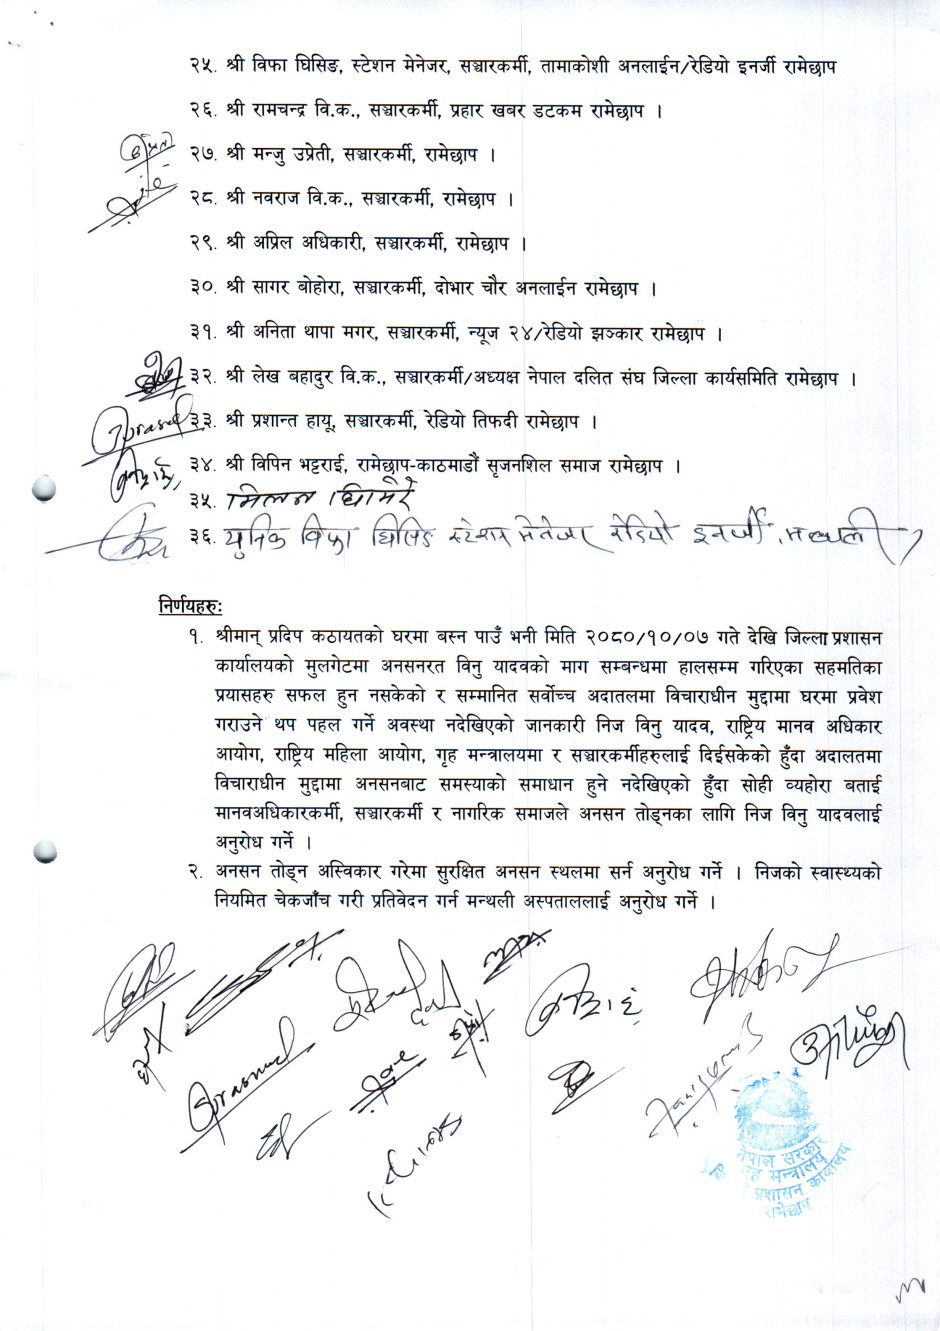 २५. श्री विफा घिसिङ, स्टेशन मेनेजर, सञ्चारकर्मी, तामाकोशी अनलाईन/रेडियो इनर्जी रामेछाप
२६. श्री रामचन्द्र वि.क., सञ्चारकर्मी, प्रहार खबर डटकम रामेछाप ।
२७. श्री मन्जु उप्रेती, सञ्चारकर्मी, रामेछाप ।
२८. श्री नवराज वि.क., सञ्चारकर्मी, रामेछाप ।
२९. श्री अप्रिल अधिकारी, सञ्चारकर्मी, रामेछाप ।
३०. श्री सागर बोहोरा, सञ्चारकर्मी, दोभार चौर अनलाईन रामेछाप ।
३१. श्री अनिता थापा मगर, सञ्चारकर्मी, न्यूज २४/रेडियो झञ्कार रामेछाप ।
३२. श्री लेख बहादुर वि.क., सञ्चारकर्मी/अध्यक्ष नेपाल दलित संघ जिल्ला कार्यसमिति रामेछाप ।
३३. श्री प्रशान्त हायू, सञ्चारकर्मी, रेडियो तिफदी रामेछाप ।
३४. श्री विपिन भट्टराई, रामेछाप-काठमाडौं सृजनशिल समाज रामेछाप ।
३५. मिलन घिमिरे
३६. युनिक विफा घिसिङ स्टेशन मेनेजर रेडियो इनर्जी, मन्थली
निर्णयहरुः
१. श्रीमान् प्रदिप कठायतको घरमा बस्न पाउँ भनी मिति २०८०/१०/०७ गते देखि जिल्ला प्रशासन
कार्यालयको मुलगेटमा अनसनरत विनु यादवको माग सम्बन्धमा हालसम्म गरिएका सहमतिका
प्रयासहरु सफल हुन नसकेको र सम्मानित सर्वोच्च अदातलमा विचाराधीन मुद्दामा घरमा प्रवेश
गराउने थप पहल गर्ने अवस्था नदेखिएको जानकारी निज विनु यादव, राष्ट्रिय मानव अधिकार
आयोग, राष्ट्रिय महिला आयोग, गृह मन्त्रालयमा र सञ्चारकर्मीहरुलाई दिईसकेको हुँदा अदालतमा
विचाराधीन मुद्दामा अनसनबाट समस्याको समाधान हुने नदेखिएको हुँदा सोही व्यहोरा बताई
मानवअधिकारकर्मी, सञ्चारकर्मी र नागरिक समाजले अनसन तोड्नका लागि निज विनु यादवलाई
अनुरोध गर्ने ।
२. अनसन तोड्न अस्विकार गरेमा सुरक्षित अनसन स्थलमा सर्न अनुरोध गर्ने । निजको स्वास्थ्यको
नियमित चेकजाँच गरी प्रतिवेदन गर्न मन्थली अस्पताललाई अनुरोध गर्ने ।
नेपाल सरकार
गृह मन्त्रालय
प्रशासन कार्यालय
रामेछाप